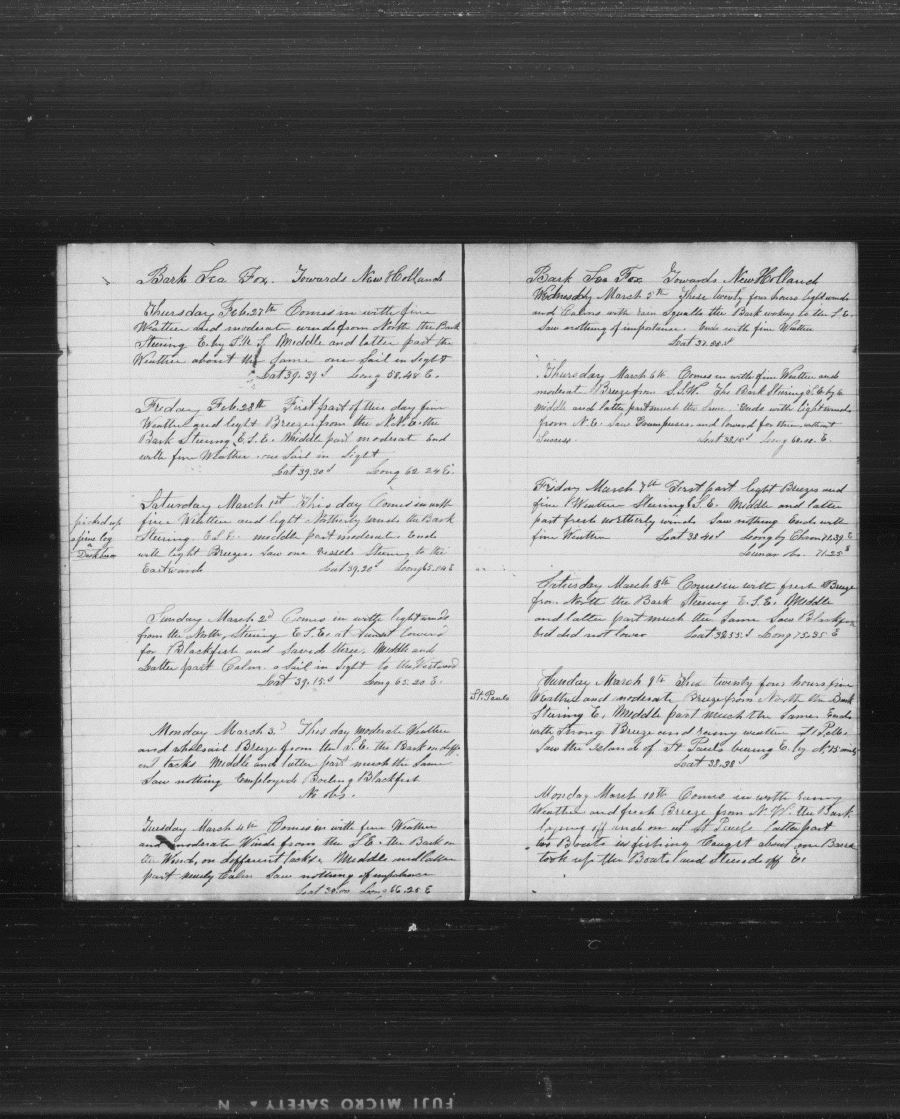 Bark Sea Fox. Towards New Holland
Thursday Feb. 27th Comes in with fine
Weather and moderate winds from North the Bark
Steering E. by S. ½ S. Middle and latter part the
Weather about the same one Sail in Sight
Lat 39.39 S Long 58.48 E.
Friday Feb. 28th First part of this day fine
Weather and light Breezes from the N.N.E. the
Bark Steering E.S.E. Middle part moderate End
with fine Weather. one Sail in Sight
Lat 39.30 S Long 62.24 E.
Saturday March 1st This day Comes in with
picked up
a pine log
Dark
fine Weather and light Northerly winds the Bark
Steering E.S.E. middle part moderate. Ends
with light Breezes. Saw one Vessel Steering to the
Eastward Lat 39.20 S Long 65.04 E
Sunday March 2d Comes in with light winds
from the North, Steering E.S.E. at Sunset lowered
for Blackfish and Saved three. Middle and
Latter part Calm. a Sail in Sight to the Westward
Lat 39.15 S Long 65.20 E.
Monday March 3d This day moderate Weather
and wholesail Breeze from the S.E. the Bark on diff
ent tacks Middle and latter part much the Same
Saw nothing Employed Boiling Blackfish
No obs.
Tuesday March 4th Comes in with fine Weather
and moderate Winds from the S.E. the Bark on
the Wind, on different tacks. Middle and latter
part nearly Calm Saw nothing of importance
Long 66.25 E
Bark Sea Fox Towards New Holland
Wednesday March 5th These twenty four hours light winds
and Calms with rain Squalls the Bark working to the S.E.
Saw nothing of importance. Ends with fine Weather
Lat
Thursday March 6th. Comes in with fine Weather and
moderate Breeze from S.S.W. The Bark Steering S.E. by E
middle and latter part much the Same. Ends with light winds
from N.E. Saw Grampuses and lowered for them without
Success. Lat Long E.
Friday March 7th First part light Breezes and
fine Weather Steering E.S.E. Middle and latter
part fresh Northerly winds Saw nothing Ends with
fine Weather Lat 38.40 S Long by Chron 71.39 E
Lunar Obs. 71.25
Saturday March 8th Comes in with fresh Breeze
from North the Bark Steering E.S.E. Middle
and latter part much the Same Saw Blackfish
but did not lower Lat 38.55 S Long 75.35 E
Sunday March 9th This twenty four hours fine
St. Pauls
Weather and moderate Breeze from North the Bark
Steering E. Middle part much the Same. Ends
with Strong Breeze and rainy weather at
Saw the Island of St Pauls bearing E. by N. 15 miles
Lat 38.38 S
Monday March 10th Comes in with rainy
Weather and fresh Breeze from N.W. the Bark
laying off and on at St Pauls latter part
two Boats in fishing Caught about one Barrel
took up the Boats and Steered off E.